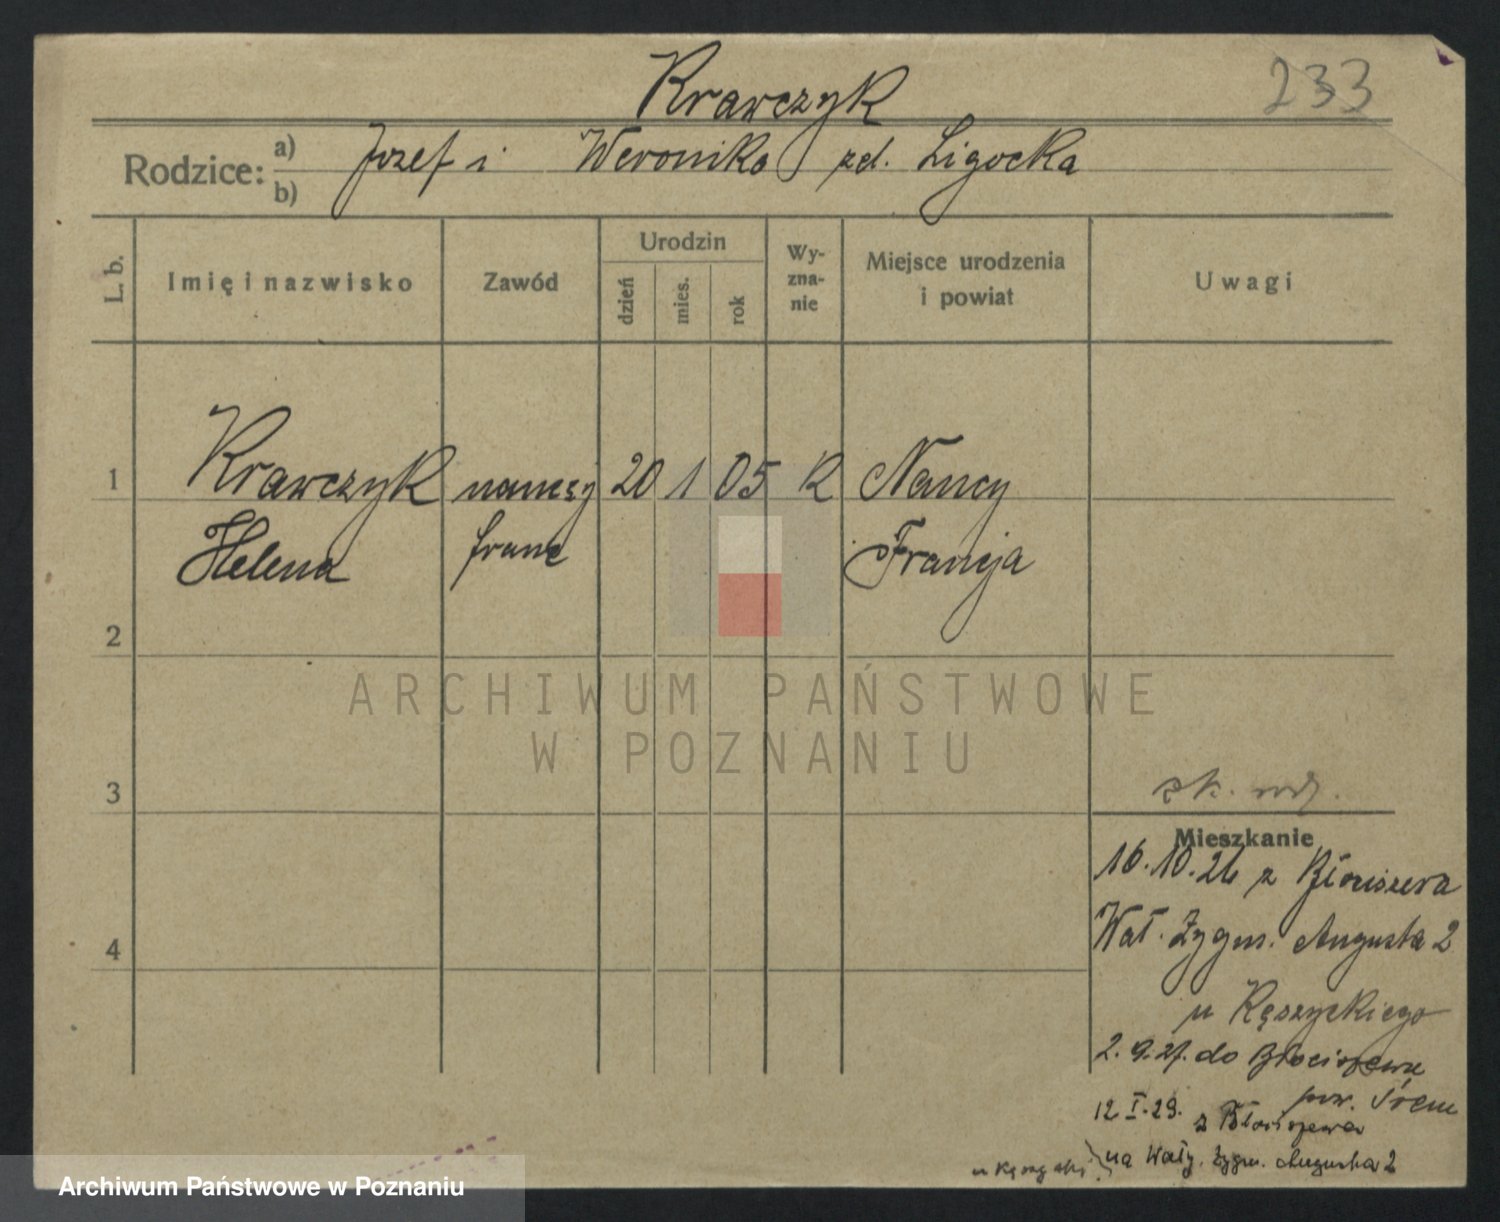 Krawczyk
233
Rodzice: a) Józef i Weronika zd. Ligocka
b)
L. b.
Imię i nazwisko
Zawód
Urodzin
dzień
mies.
rok
Wy-
zna-
nie
Miejsce urodzenia
i powiat
Uwagi
1 Krawczyk naucz 20 1 05 R Nancy
Helena franc Francja
2
ARCHIWUM PAŃSTWOWE
W POZNANIU
3
Mieszkanie
16.10.26 z Błociszewa
Wał. Zygm. Augusta 2
4
u Kęszyckiego
2.9.27. do Błociszewa
pow. Śrem
12 I.29. z Błociszewa
na Wały. Zygm. Augusta 2
Archiwum Państwowe w Poznaniu